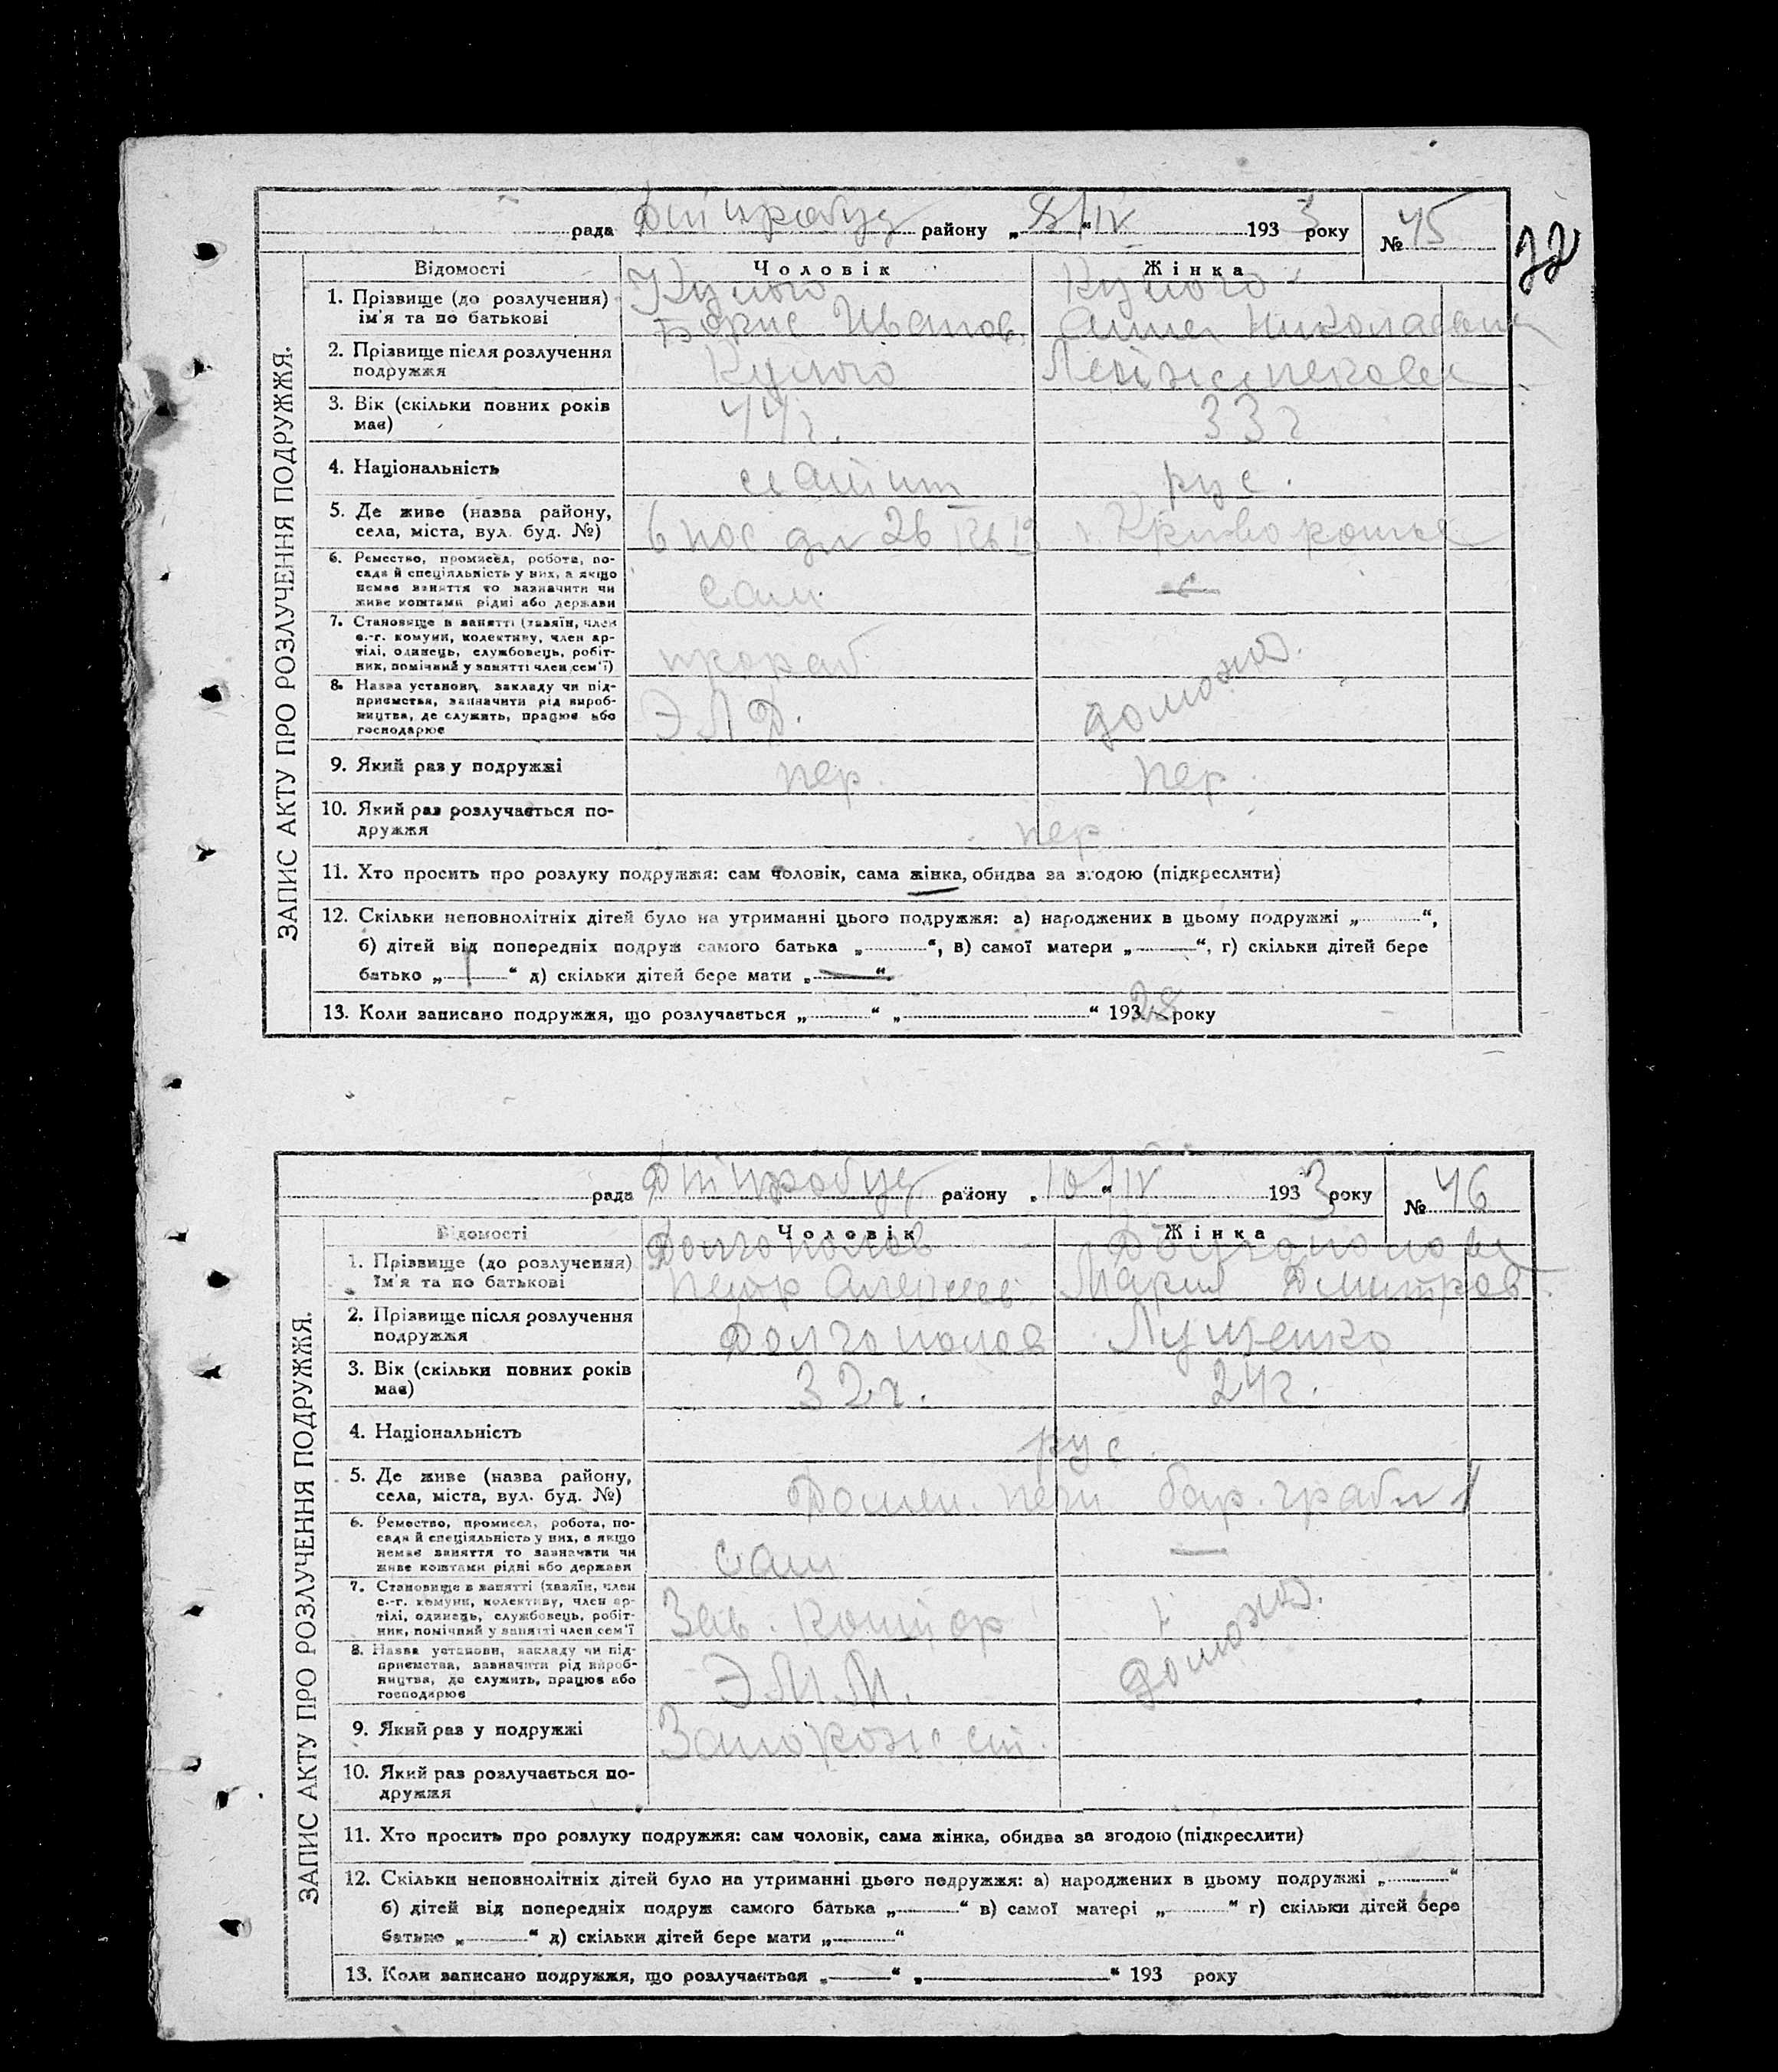 рада Дніпробуд району „8/IV“ 1933 року №45
22
ЗАПИС АКТУ ПРО РОЗЛУЧЕННЯ ПОДРУЖЖЯ.
Відомості Чоловік Жінка
1. Прізвище (до розлучення)
ім'я та по батькові
Борис Иванов. Анна Николаевна
2. Прізвище після розлучення
подружжя
3. Вік (скільки повних років
має)
44г. 33г
4. Національність
рус.
5. Де живе (назва району,
села, міста, вул. буд. №)
6 пос дн 26 кв 19
6. Ремество, промисел, робота, по-
сада й спеціяльність у них, а якщо
немає заняття то зазначити чи
живе коштами рідні або держави
сам
7. Становище в занятті (хазяїн, член
с.-г. комуни, колективу, член ар-
тілі, одинець, службовець, робіт-
ник, помічний у занятті член сем'ї)
прораб
8. Назва установи, закладу чи під-
приємства, зазначити рід вироб-
ництва, де служить, працює або
господарює
домохоз.
9. Який раз у подружжі
пер. пер.
10. Який раз розлучається по-
дружжя
пер.
11. Хто просить про розлуку подружжя: сам чоловік, сама жінка, обидва за згодою (підкреслити)
12. Скільки неповнолітніх дітей було на утриманні цього подружжя: а) народжених в цьому подружжі „ “,
б) дітей від попередніх подруж самого батька „ “, в) самої матери „ “, г) скільки дітей бере
батько „1“ д) скільки дітей бере мати „—“.
13. Коли записано подружжя, що розлучається „ “ „ “ 1928 року
рада Дніпробуд району „10/IV“ 1933 року №46
ЗАПИС АКТУ ПРО РОЗЛУЧЕННЯ ПОДРУЖЖЯ.
Відомості Чоловік Жінка
Долгополов Долгополова
1. Прізвище (до розлучення)
їм'я та по батькові
Петр Алексеев. Мария Дмитров.
2. Прізвище після розлучення
подружжя
Долгополов Лущенко
3. Вік (скільки повних років
має)
32г. 24г.
4. Національність
рус.
5. Де живе (назва району,
села, міста, вул. буд. №)
Домен. печи бар.
6. Ремество, промисел, робота, по-
сада й спеціяльність у них, а якщо
немає заняття то зазначити чи
живе коштами рідні або держави
сам —
7. Становище в занятті (хазяїн, член
с.-г. комуни, колективу, член ар-
тілі, одинець, службовець, робіт-
ник, помічний у занятті член сем'ї
Зав. контор
8. Назва установи, закладу чи під-
приємства, зазначити рід вироб-
ництва, де служить, працює або
господарює
домохоз.
9. Який раз у подружжі
10. Який раз розлучається по-
дружжя
11. Хто просить про розлуку подружжя: сам чоловік, сама жінка, обидва за згодою (підкреслити)
12. Скільки неповнолітніх дітей було на утриманні цього подружжя: а) народжених в цьому подружжі „ “
б) дітей від попередніх подруж самого батька „ “ в) самої матері „ “ г) скільки дітей бере
батько „ “ д) скільки дітей бере мати „ “
13. Коли записано подружжя, що розлучається „ “ „ “ 193 року